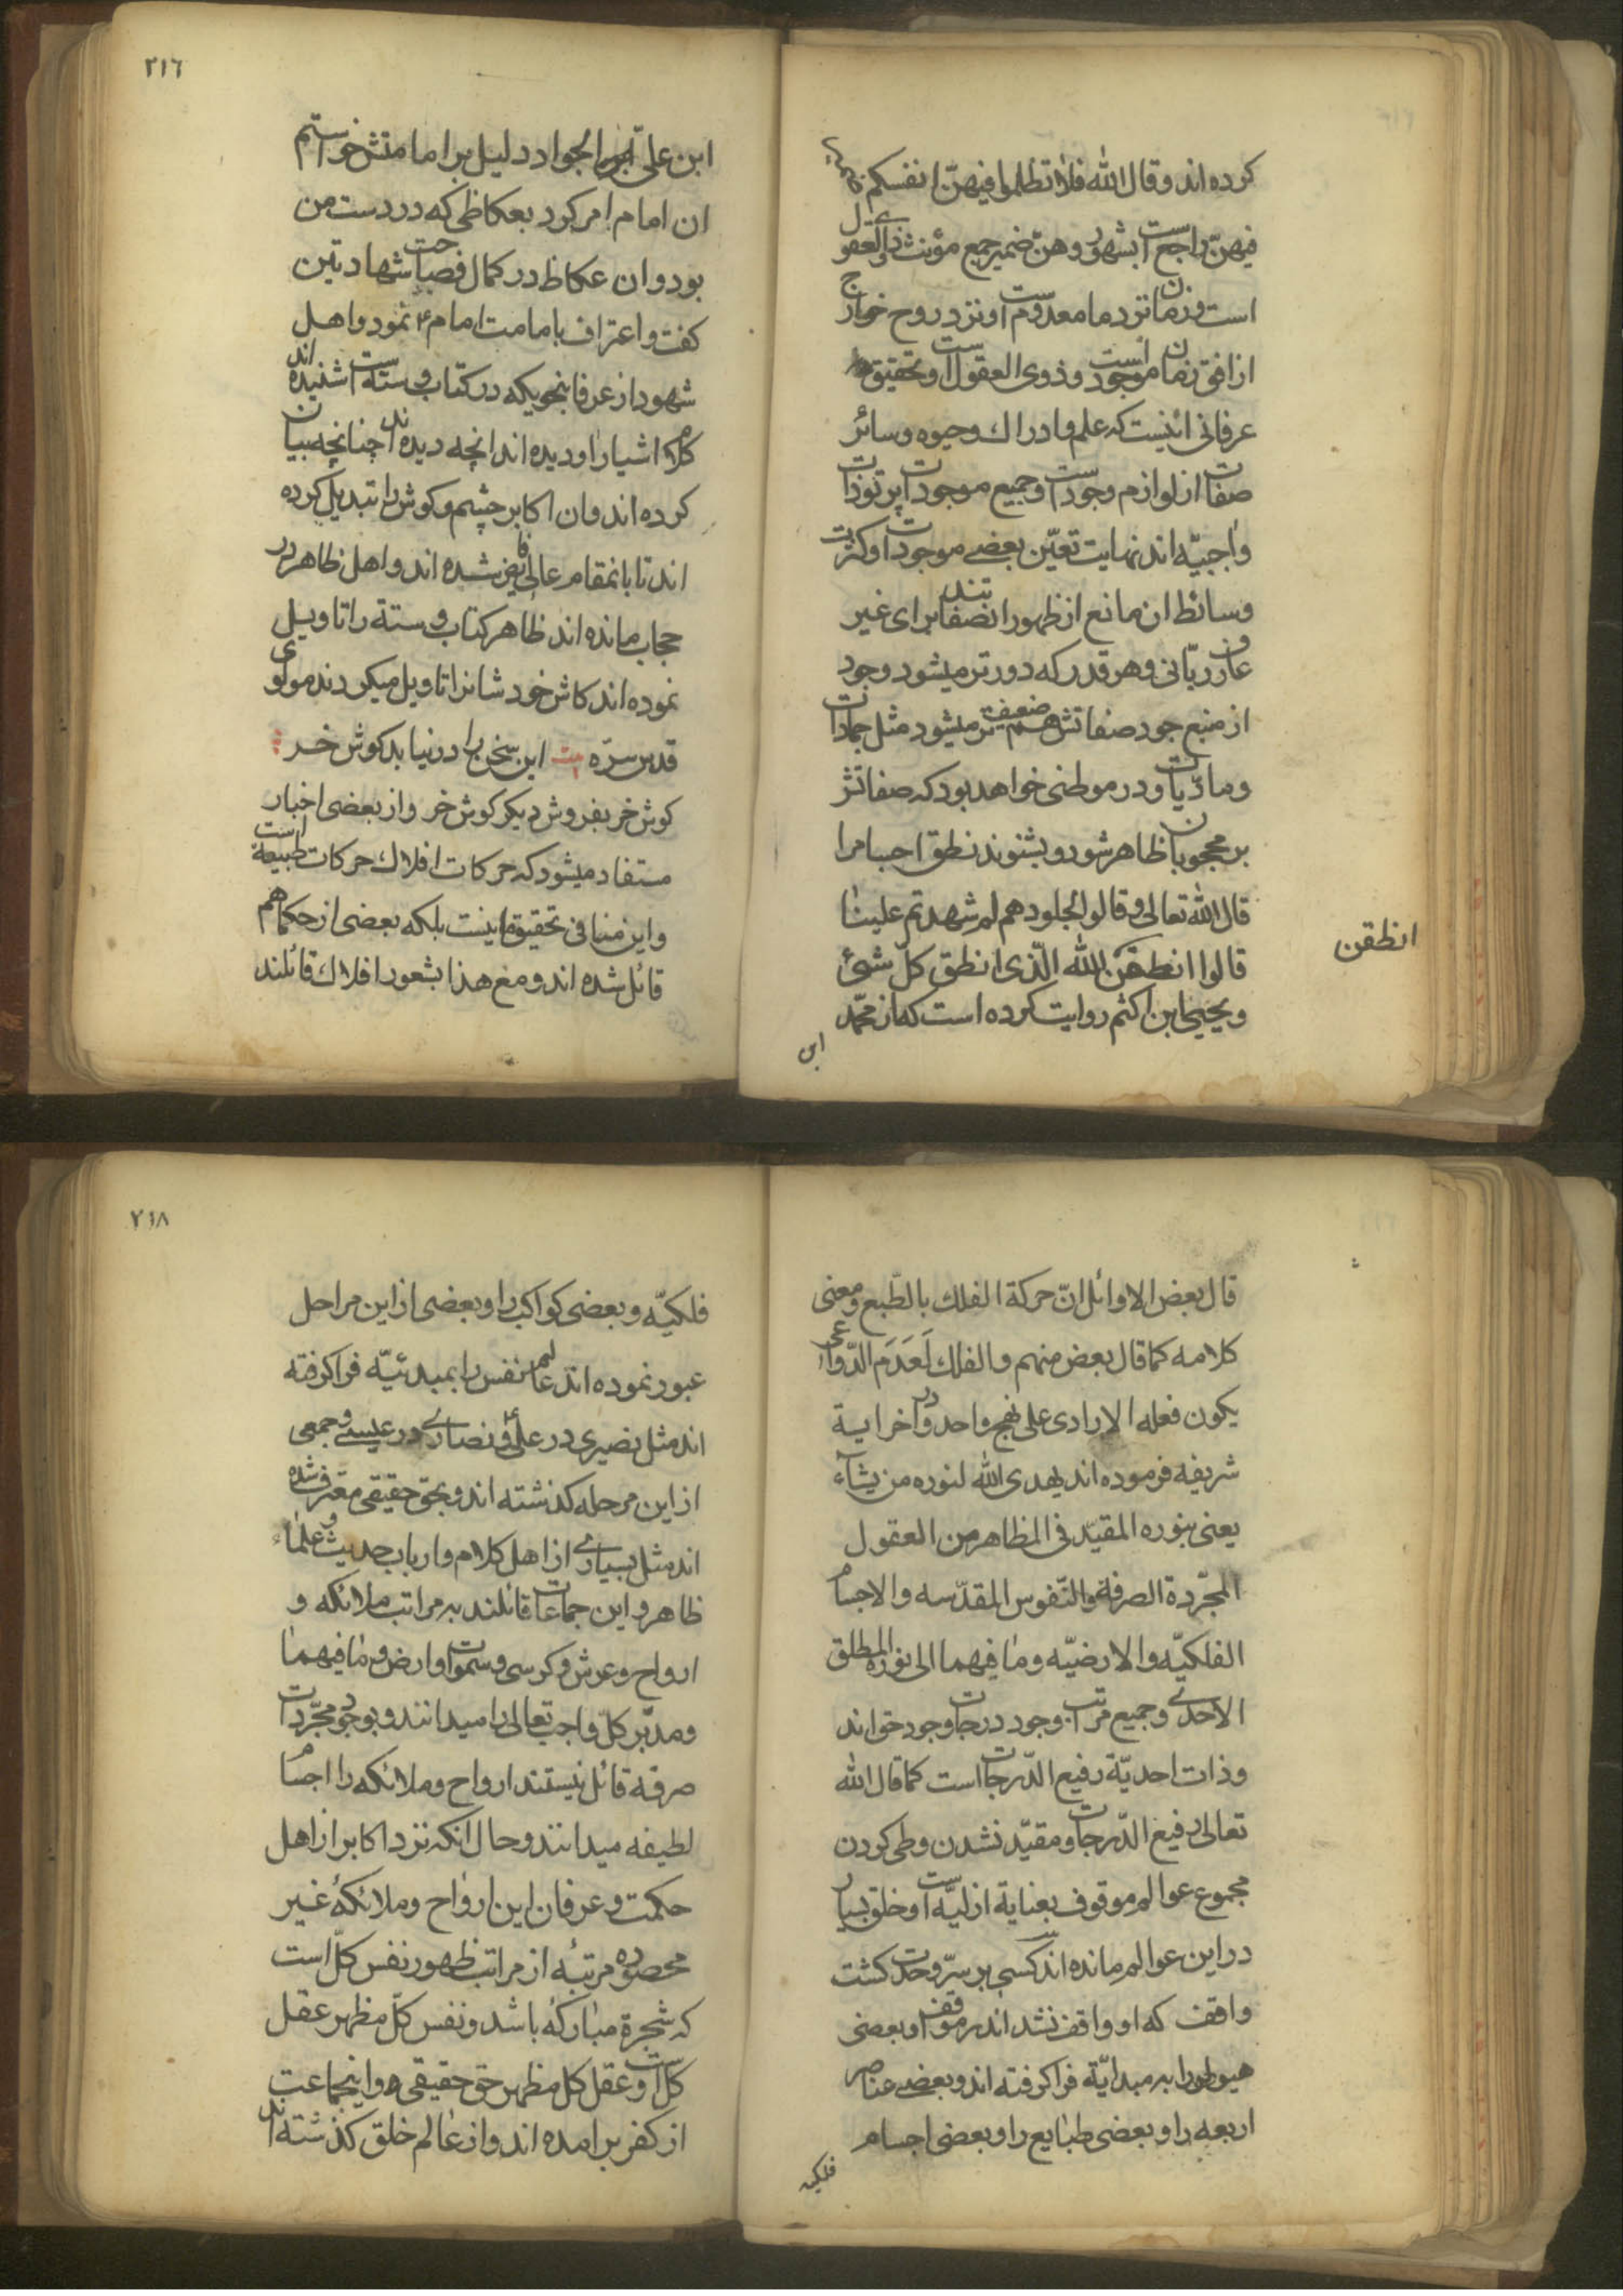 کرده اند و قال الله فلا تظلموا فیهنّ انفسکم
فیهنّ راجع است بشهور و هنّ ضمیر جمع مؤنث ذوی العقول
است و زمان نزد ما معدوم است و نزد روح خارج
از افق زمان موجود است و ذوی العقول است و تحقیق
عرفانی اینست که علم و ادراک و حیوه و سائر
صفات از لوازم وجود است و جمیع موجودات پرتو ذات
واجبیّه اند نهایت تعیّن بعضے موجودات و کثرت
وسائط ان مانع از ظهور انصفاتند برای غیر
عارف ربّانی و هر قدر که دورتر میشود وجود
از منبع جود صفاتش هم ضعیف تر میشود مثل جمادات
و مادّیات و در موطنی خواهد بود که صفاتش
بر محجوبان ظاهر شود و بشنوند نطق اجسام را
قال الله تعالی و قالوا لجلودهم لم شهدتم علینا
قالوا انطقن الله الّذی انطق کلّ شئ
انطقن
و یحیی ابن اکثم روایت کرده است که از محمّد
ابن
٢١٦
ابن علیّ الجواد دلیل بر امامتش خواستم
ان امام امر کرد بعکاظی که در دست من
بود و ان عکاظ در کمال فصاحت شهادتین
کفت و اعتراف بامامت امام ۴ نمود و اهل
شهود از عرفا بنحویکه در کتاب و سنة است شنیده اند
کلام اشیا را و دیده اند انچه دیده اند چنانچه بیان
کرده اند و ان اکابر چشم و کوش را تبدیل کرده
اند تا بانمقام عالی فایض شده اند و اهل ظاهر در
حجاب مانده اند ظاهر کتاب و سنة را تاویل
نموده اند کاش خود شانرا تاویل میکردند مولوی
قدس سرّه بیت این سخن را در نیابد کوش خر
کوش خر بفروش دیکر کوش خر و از بعضی اخبار
مستفاد میشود که حرکات افلاک حرکات طبیعة است
و این منافی تحقیق ما نیست بلکه بعضی از حکما هم
قائل شده اند و مع هذا بشعور افلاک قائلند
قال بعض الاوائل انّ حرکة الفلک بالطّبع و معنی
کلامه کما قال بعض منهم و الفلک لعدم الدّواعی
یکون فعله الارادی علی نهج واحد و در اخر ایة
شریفه فرموده اند یهدی الله لنوره من یشآء
یعنی بنوره المقیّد فی المظاهر من العقول
المجرّدة الصرفة و النّفوس المقدّسه و الاجسام
الفلکیّه و الارضیّه و ما فیهما الی نوره المطلق
الاحدی و جمیع مراتب وجود درجات وجود خواند
و ذات احدیّة رفیع الدّرجات است کما قال الله
تعالی رفیع الدّرجات و مقیّد نشدن و طی کردن
مجموع عوالم موقوف بعنایة ازلیّه است و خلق بسیار
در این عوالم مانده اند کسی بر سرّ وحدت کشت
واقف که او واقف نشد اندر موقف و بعضی
هیولی را به مبدائیّة فرا کرفته اند و بعضے عناصر
اربعه را و بعضی طبایع را و بعضی اجسام
فلکیه
٢١٨
فلکیّه و بعضی کواکب را و بعضی از این مراحل
عبور نموده اند عالم نفس را بمبدئیّه فرا کرفته
اند مثل نصیری در علی ۴ و نصاری در عیسی و جمعی
از این مرحله کذشته اند و بحق حقیقی معترف شده
اند مثل بسیاری از اهل کلام و ارباب حدیث و علماء
ظاهر و این جماعات قائلند به مراتب ملائکه و
ارواح و عرش و کرسی و سموات و ارض و ما فیهما
و مدبّر کلّ واجب تعالی را میدانند و بوجود مجرّدات
صرفه قائل نیستند ارواح و ملائکه را اجسام
لطیفه میدانند و حال انکه نزد اکابر از اهل
حکمت و عرفان این ارواح و ملائکۀ غیر
محصوره مرتبۀ از مراتب ظهور نفس کلّ است
که شجرة مبارکه باشد و نفس کلّ مظهر عقل
کل است و عقل کل مظهر حق حقیقی و اینجماعت
از کفر برامده اند و از عالم خلق کذشته اند